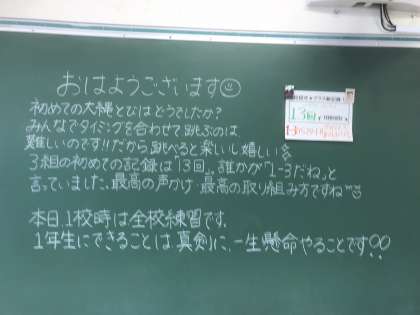 おはようございます☺
初めての大縄とびはどうでしたか?
みんなでタイミングを合わせて跳ぶのは
難しいのです!!だから跳べると楽しいし嬉しい
3組の初めての記録は「13回」。誰かが「1-3だね。」と
言っていました。最高の声かけ・最高の取り組み方ですね
本日1校時は全校練習です。
1年生にできることは真剣に、一生懸命やることです!!
13回